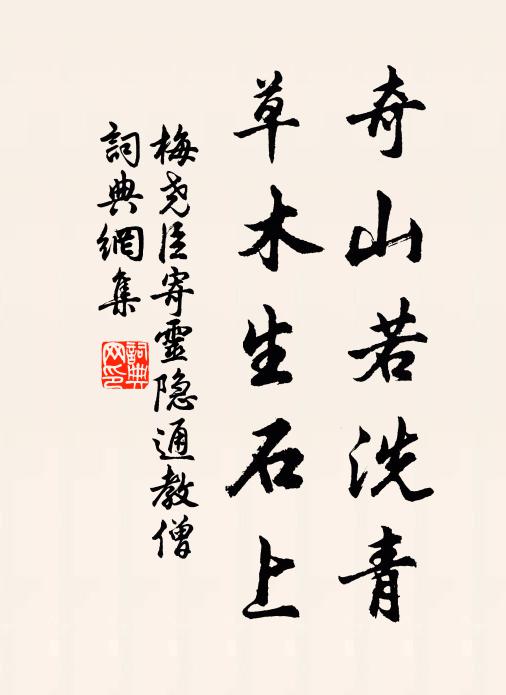 奇山若洗青
草木生石上
梅尧臣寄靈隐通教僧
詞典網集
詞典
网印